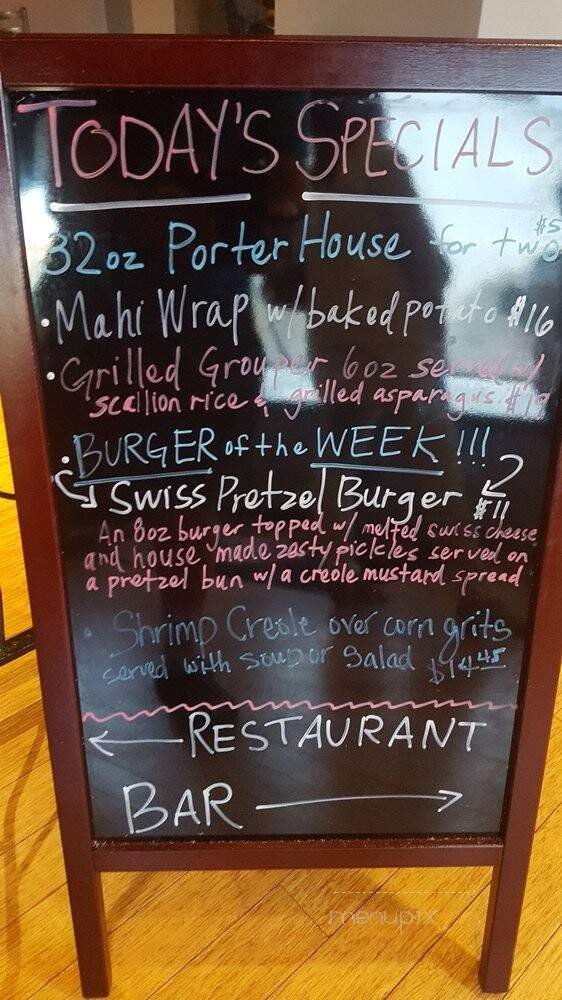 TODAY'S SPECIALS
32oz Porter House for two $5
• Mahi Wrap w/ baked potato $16
• Grilled Grouper 6oz served w/
scallion rice & grilled asparagus. $19
• BURGER of the WEEK!!!
Swiss Pretzel Burger $11
An 8oz burger topped w/ melted swiss cheese
and house made zesty pickles served on
a pretzel bun w/ a creole mustard spread
• Shrimp Creole over corn grits
served with soup or salad $14.45
← RESTAURANT
BAR →
menupix